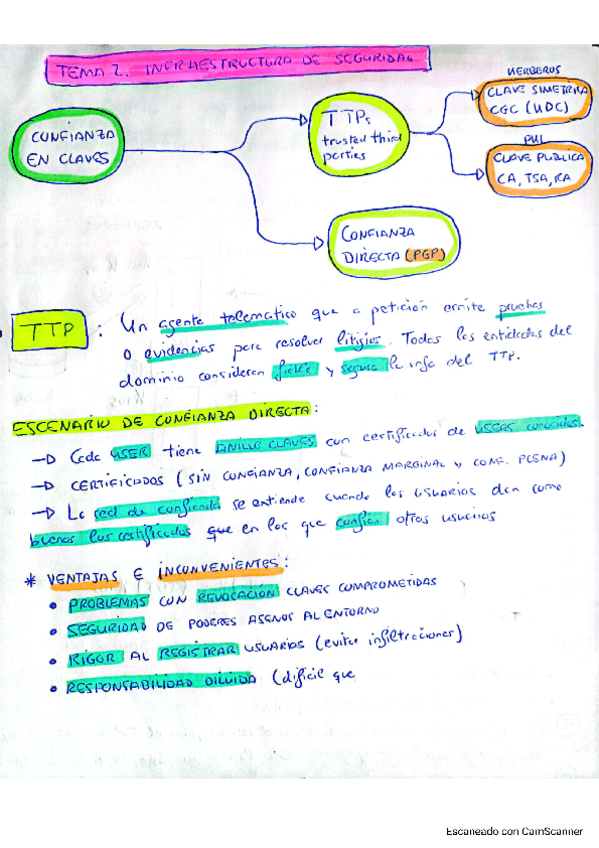 TEMA 2. INFRAESTRUCTURA DE SEGURIDAD
CONFIANZA
EN CLAVES
TTPs
trusted third
parties
KERBEROS
CLAVE SIMETRICA
CGC (KDC)
PKI
CLAVE PUBLICA
CA, TSA, RA
CONFIANZA
DIRECTA (PGP)
TTP : Un agente telematico que a petición emite pruebas
o evidencias para resolver litigios. Todas las entidades del
dominio consideran fiable y segura la info del TTP.
ESCENARIO DE CONFIANZA DIRECTA:
→ Cada USER tiene ANILLO CLAVES con certificados de USERS conocidos.
→ CERTIFICADOS (SIN CONFIANZA, CONFIANZA MARGINAL Y CONF. PLENA)
→ La red de confianza se extiende cuando los usuarios dan como
buenos los certificados que en los que confían otros usuarios
* VENTAJAS E INCONVENIENTES:
• PROBLEMAS CON REVOCACIÓN CLAVES COMPROMETIDAS
• SEGURIDAD DE PODERES AGENOS AL ENTORNO
• RIGOR AL REGISTRAR USUARIOS (evitar infiltraciones)
• RESPONSABILIDAD DILUIDA (dificil que
Escaneado con CamScanner